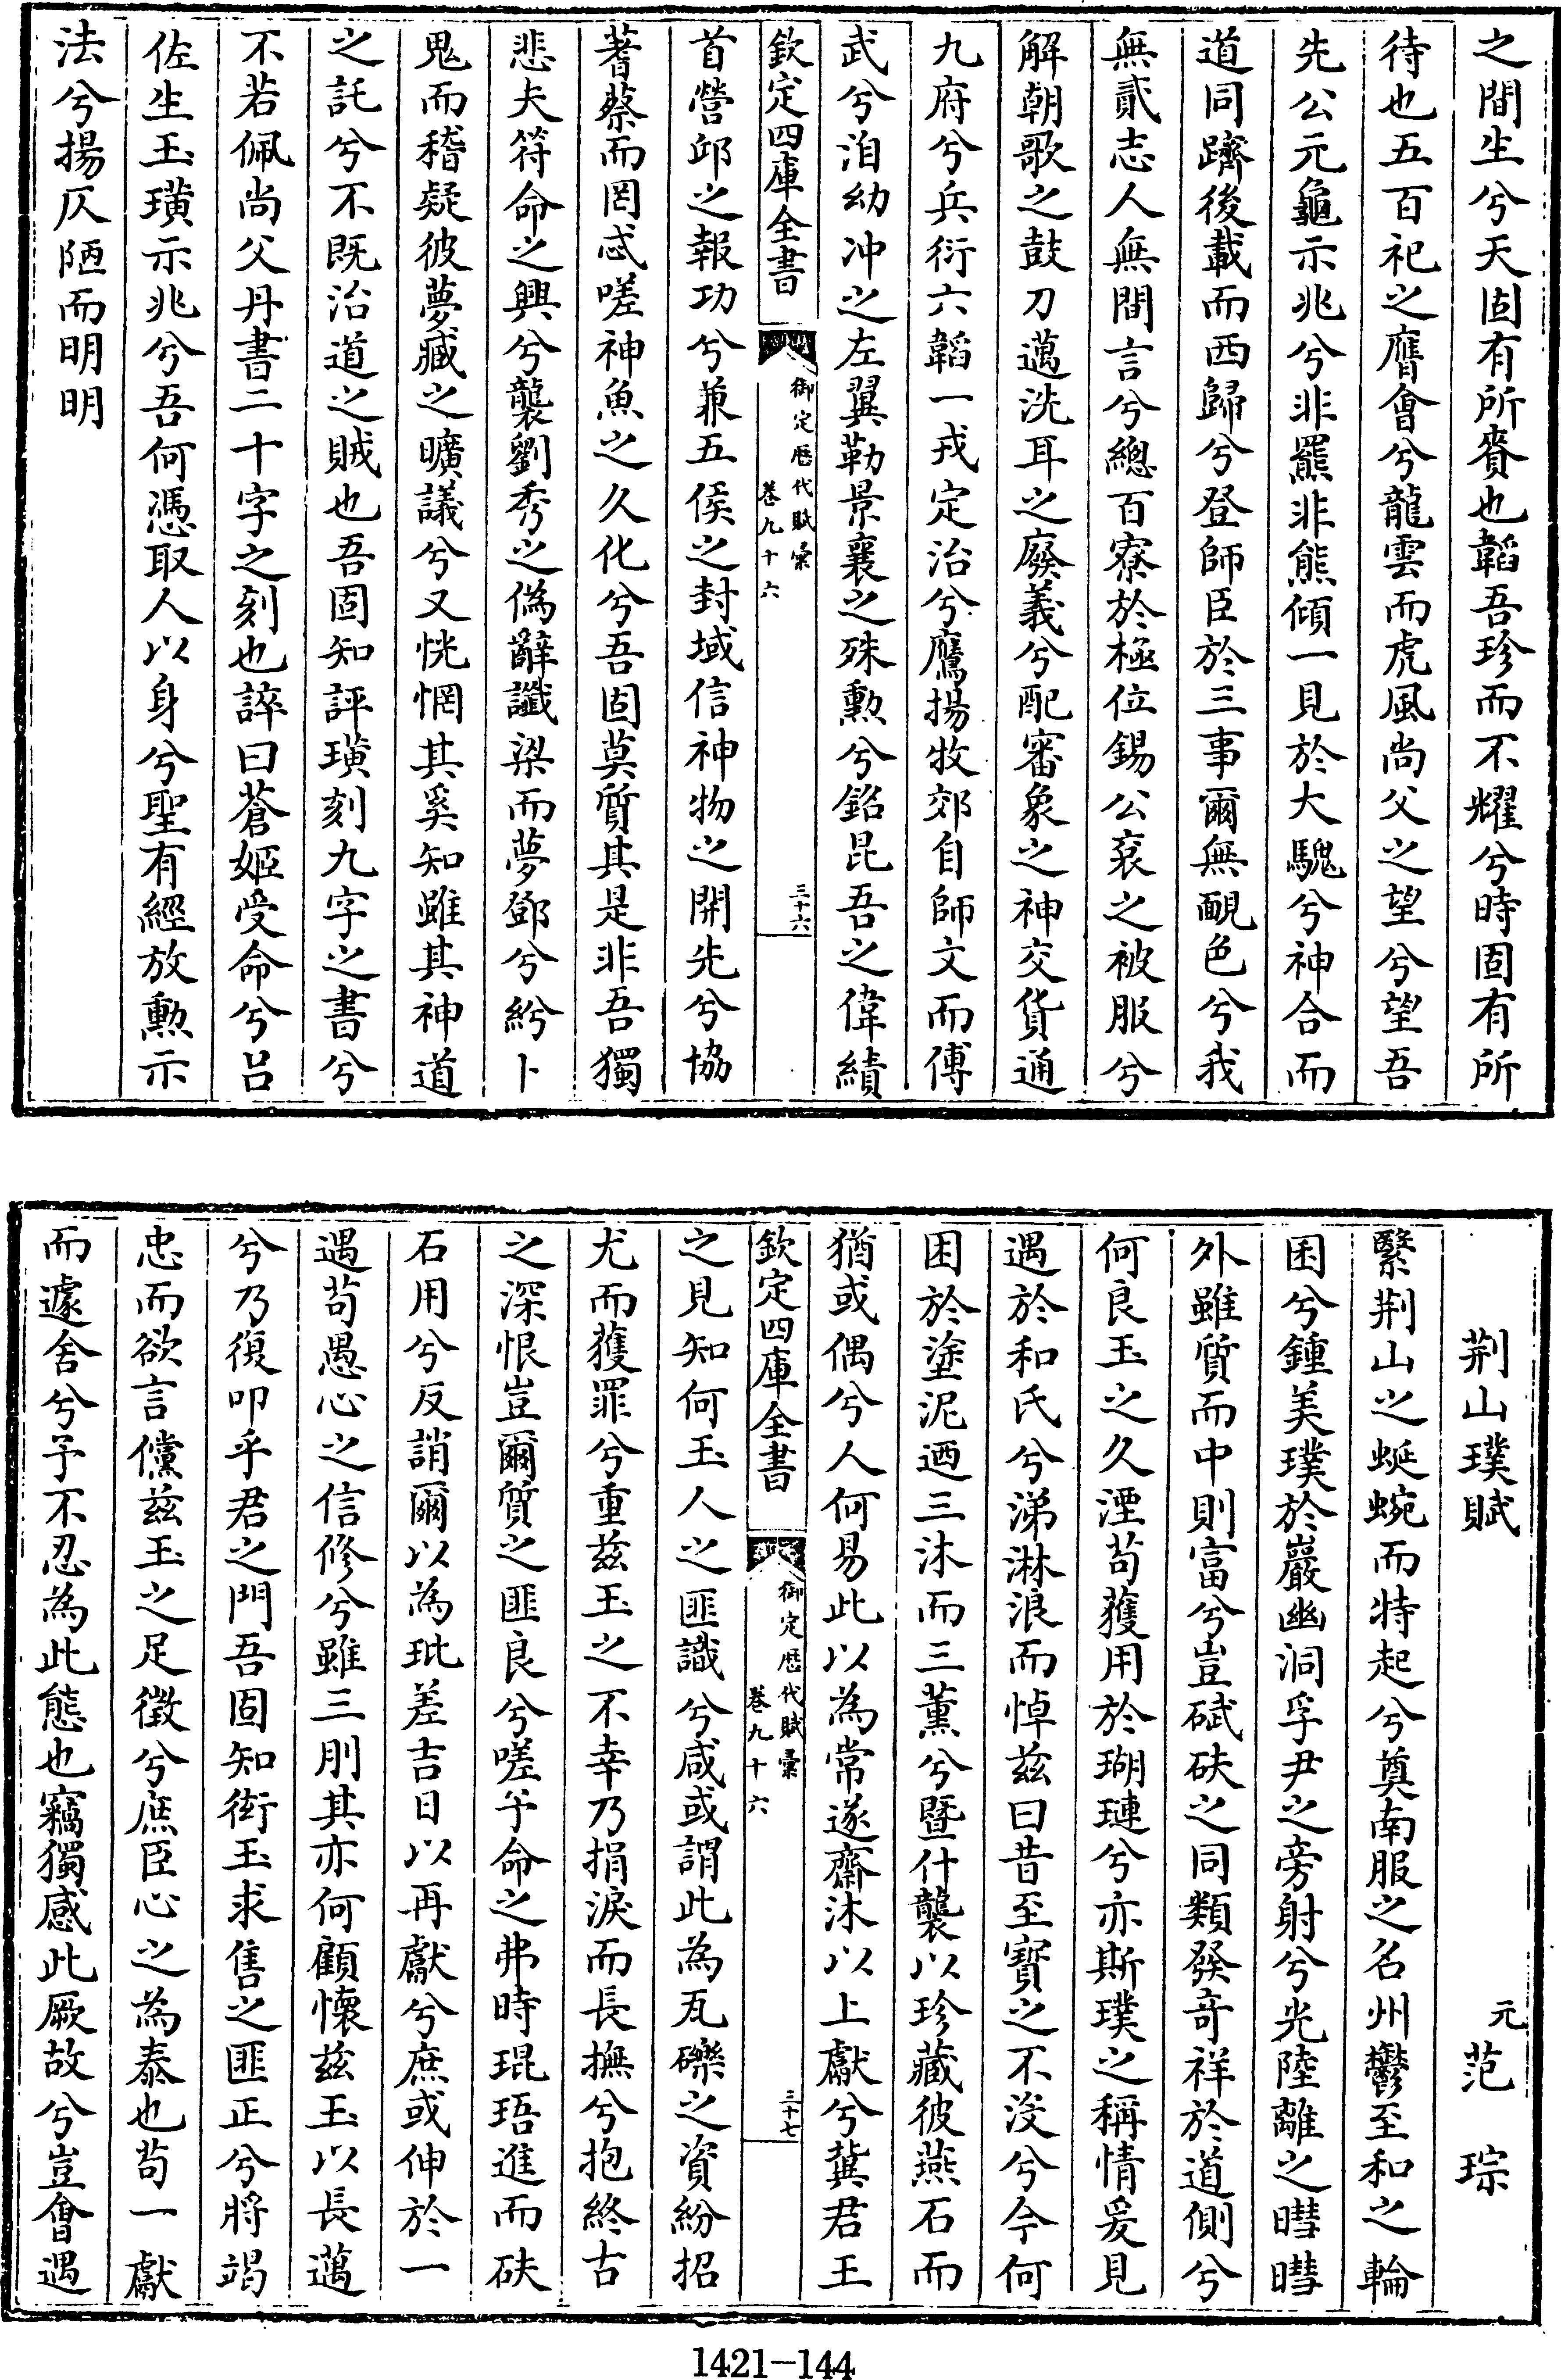 之間生兮天固有所賚也韜吾珍而不耀兮時固有所
待也五百祀之膺會兮龍雲而虎風尚父之望兮望吾
先公元龜示兆兮非羆非熊傾一見於大騩兮神合而
道同躋後載而西歸兮登師臣於三事爾無覥色兮我
無貳志人無間言兮總百寮於極位錫公袞之被服兮
解朝歌之鼓刀邁洗耳之廢義兮配審象之神交貨通
九府兮兵衍六韜一戎定治兮鷹揚牧郊自師文而傅
武兮洎幼冲之左翼勒景襄之殊勲兮銘昆吾之偉績
欽定四庫全書
御定歴代賦彙
卷九十六
三十六
首營邱之報功兮兼五侯之封域信神物之開先兮協
蓍蔡而罔忒嗟神魚之久化兮吾固莫質其是非吾獨
悲夫符命之興兮襲劉秀之僞辭讖梁而夢鄧兮紛卜
鬼而稽疑彼夢臧之曠議兮又恍惘其奚知雖其神道
之託兮不既治道之賊也吾固知評璜刻九字之書兮
不若佩尚父丹書二十字之刻也誶曰蒼姬受命兮呂
佐生玉璜示兆兮吾何憑取人以身兮聖有經放勲示
法兮揚仄陋而明明
荆山璞賦
元
范琮
繄荆山之蜿蜒而特起兮奠南服之名州鬱至和之輪
困兮鍾美璞於巖幽洞孚尹之旁射兮光陸離之暳暳
外雖質而中則富兮豈碔砆之同類發奇祥於道側兮
何良玉之久湮苟獲用於瑚璉兮亦斯璞之稱情爰見
遇於和氏兮涕淋浪而悼茲曰昔至寶之不没兮今何
困於塗泥迺三沐而三薰兮曁什襲以珍藏彼燕石而
猶或偶兮人何易此以為常遂齋沐以上獻兮冀君王
欽定四庫全書
御定歴代賦彙
卷九十六
三十七
之見知何玉人之匪識兮咸或謂此為瓦礫之資紛招
尤而獲罪兮重茲玉之不幸乃捐淚而長撫兮抱終古
之深恨豈爾質之匪良兮嗟乎命之弗時琨珸進而砆
石用兮反誚爾以為玼差吉日以再獻兮庶或伸於一
遇苟愚心之信修兮雖三刖其亦何顧懷茲玉以長邁
兮乃復叩乎君之門吾固知衒玉求售之匪正兮將竭
忠而欲言儻茲玉之足徵兮庶臣心之為泰也苟一獻
而遽舍兮予不忍為此態也竊獨感此厥故兮豈㑹遇
1421-144